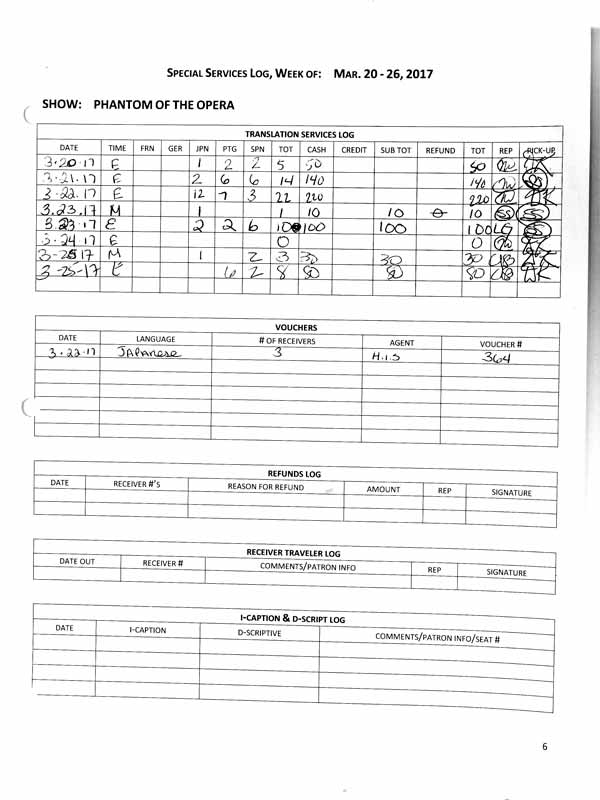 SPECIAL SERVICES LOG, WEEK OF: MAR. 20 - 26, 2017
SHOW: PHANTOM OF THE OPERA
TRANSLATION SERVICES LOG
DATE TIME FRN GER JPN PTG SPN TOT CASH CREDIT SUB TOT REFUND TOT REP PICK-UP
3.20.17 E 1 2 2 5 50 50
3.21.17 E 2 6 6 14 140 140 SS
3.22.17 E 12 7 3 22 220 220
3.23.17 M 1 1 10 10 0 10 SS SS
3.23.17 E 2 2 6 10 100 100 100 LG SS
3.24.17 E 0 0
3-25 17 M 1 2 3 30 30 30
3-25-17 E 6 2 8 80 80 80
VOUCHERS
DATE LANGUAGE # OF RECEIVERS AGENT VOUCHER #
3.22.17 Japanese 3 H.I.S 364
REFUNDS LOG
DATE RECEIVER #'S REASON FOR REFUND AMOUNT REP SIGNATURE
RECEIVER TRAVELER LOG
DATE OUT RECEIVER # COMMENTS/PATRON INFO REP SIGNATURE
I-CAPTION & D-SCRIPT LOG
DATE I-CAPTION D-SCRIPTIVE COMMENTS/PATRON INFO/SEAT #
6